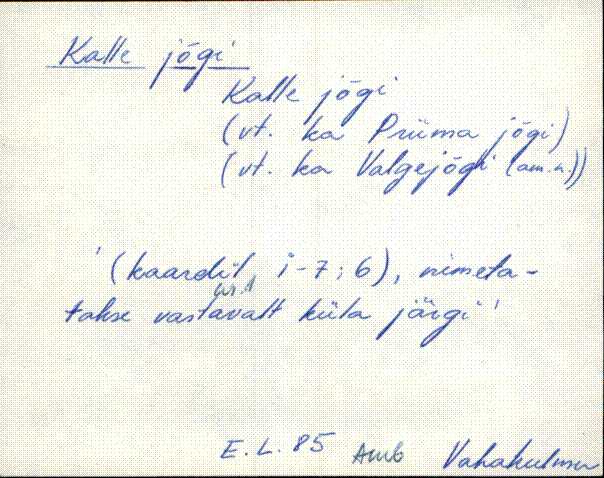 Kalle jõgi
Kalle jõgi
(vt. ka Priima jõgi)
(vt. ka Valgejõgi (am.n.))
' (kaardil, i-7; 6), nimeta-
nr.1
takse vastavalt küla järgi '
E. L. 85 Amb Vahakulmu